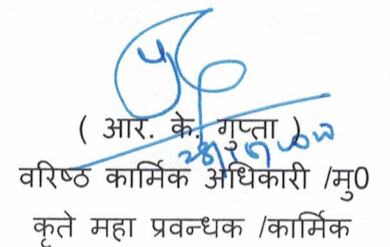 ( आर. के. गुप्ता )
वरिष्ठ कार्मिक अधिकारी /मु0
कृते महा प्रवन्धक /कार्मिक